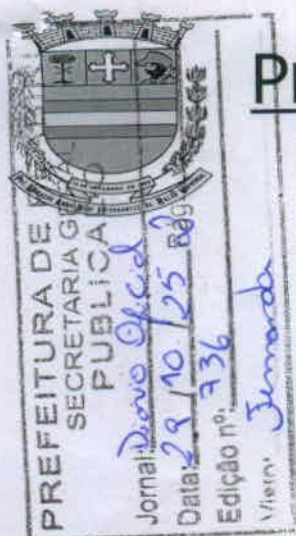 Pr
PREFEITURA DE
SECRETARIA G
PUBLICA
Jornal: Diario Oficial
Data: 29/10/25 Pág
Edição nº: 736
Visto: Fernanda